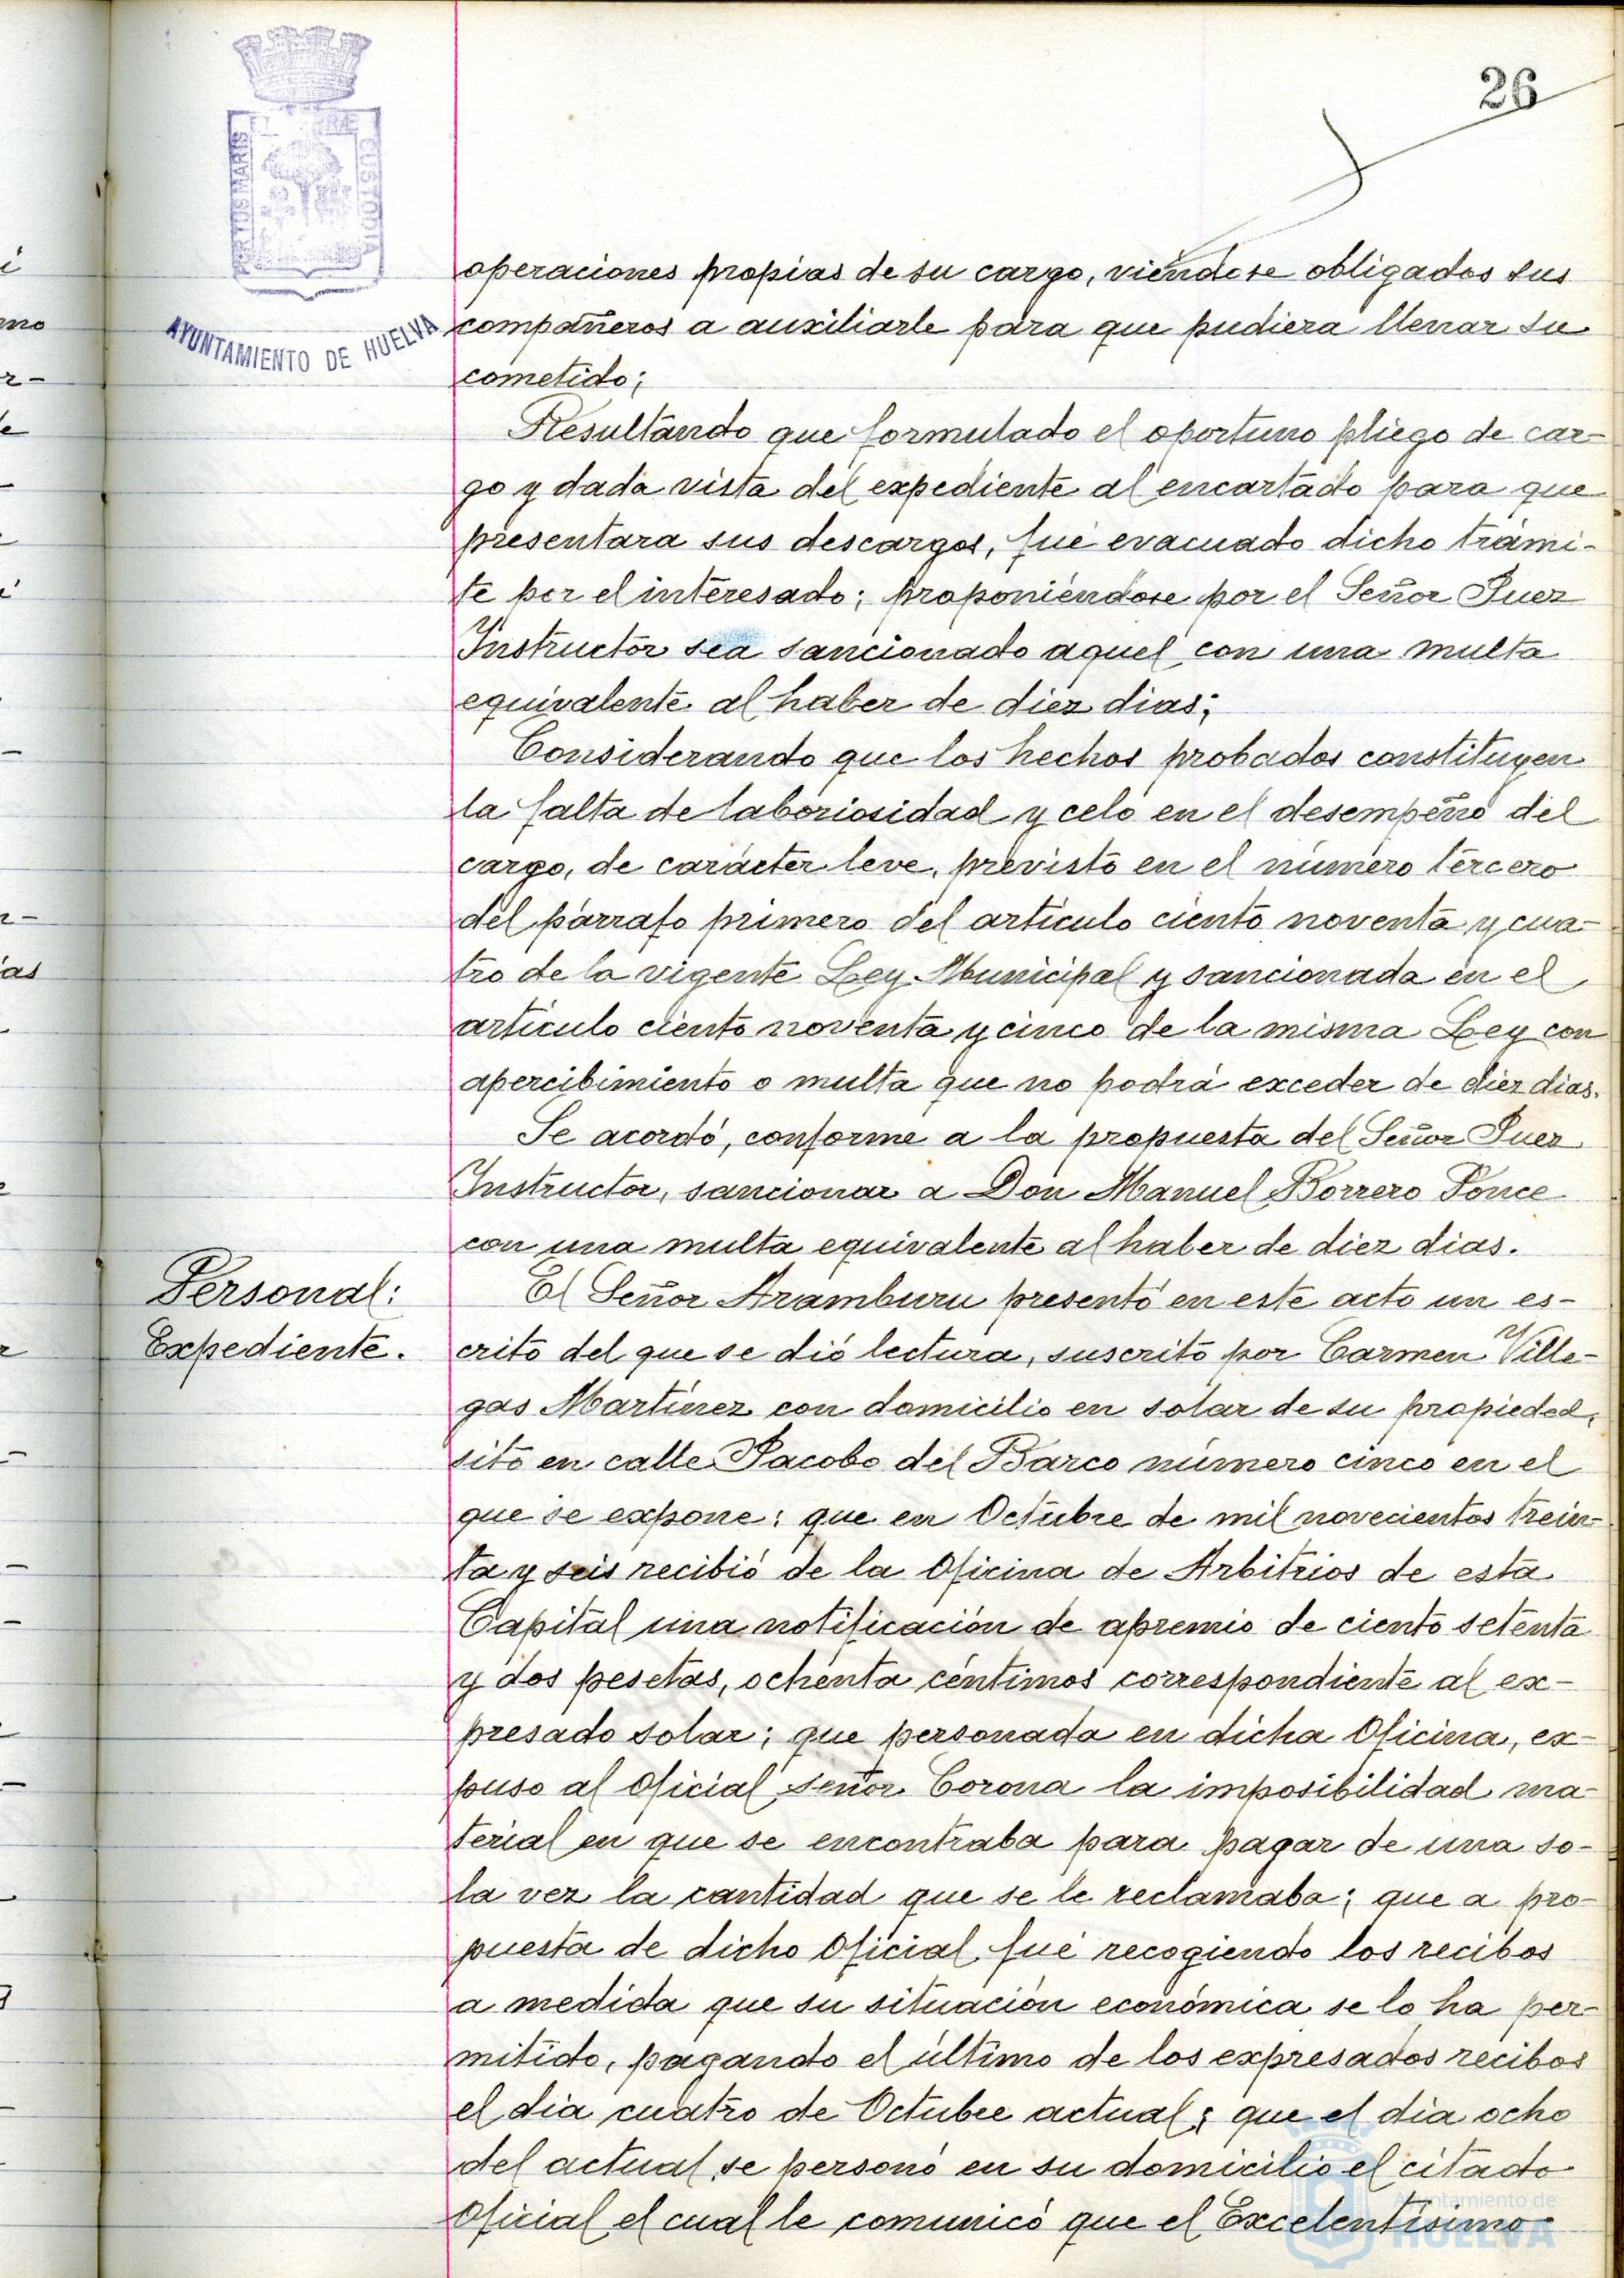 26
PORTUS MARIS
ET TERRAE
CUSTODIA
AYUNTAMIENTO DE HUELVA
operaciones propias de su cargo, viéndose obligados sus
compañeros a auxiliarle para que pudiera llenar su
cometido;
Resultando que formulado el oportuno pliego de car-
go y dada vista del expediente al encartado para que
presentara sus descargos, fué evacuado dicho trámi-
te por el interesado; proponiéndose por el Señor Juez
Instructor sea sancionado aquel con una multa
equivalente al haber de diez dias;
Considerando que los hechos probados constituyen
la falta de laboriosidad y celo en el desempeño del
cargo, de carácter leve, previsto en el número tercero
del párrafo primero del artículo ciento noventa y cua-
tro de la vigente Ley Municipal y sancionada en el
artículo ciento noventa y cinco de la misma Ley con
apercibimiento o multa que no podrá exceder de diez dias.
Se acordó, conforme a la propuesta del Señor Juez
Instructor, sancionar a Don Manuel Borrero Ponce
con una multa equivalente al haber de diez dias.
Personal:
Expediente.
El Señor Aramburu presentó en este acto un es-
crito del que se dió lectura, suscrito por Carmen Ville-
gas Martínez con domicilio en solar de su propiedad,
sito en calle Jacobo del Barco número cinco en el
que se expone: que en Octubre de mil novecientos trein-
ta y seis recibió de la Oficina de Arbitrios de esta
Capital una notificación de apremio de ciento setenta
y dos pesetas, ochenta céntimos correspondiente al ex-
presado solar; que personada en dicha Oficina, ex-
puso al Oficial señor Corona la imposibilidad ma-
terial en que se encontraba para pagar de una so-
la vez la cantidad que se le reclamaba; que a pro-
puesta de dicho Oficial fué recogiendo los recibos
a medida que su situación económica se lo ha per-
mitido, pagando el último de los expresados recibos
el dia cuatro de Octubre actual; que el dia ocho
del actual se personó en su domicilio el citado
Oficial el cual le comunicó que el Excelentísimo
Ayuntamiento de
HUELVA